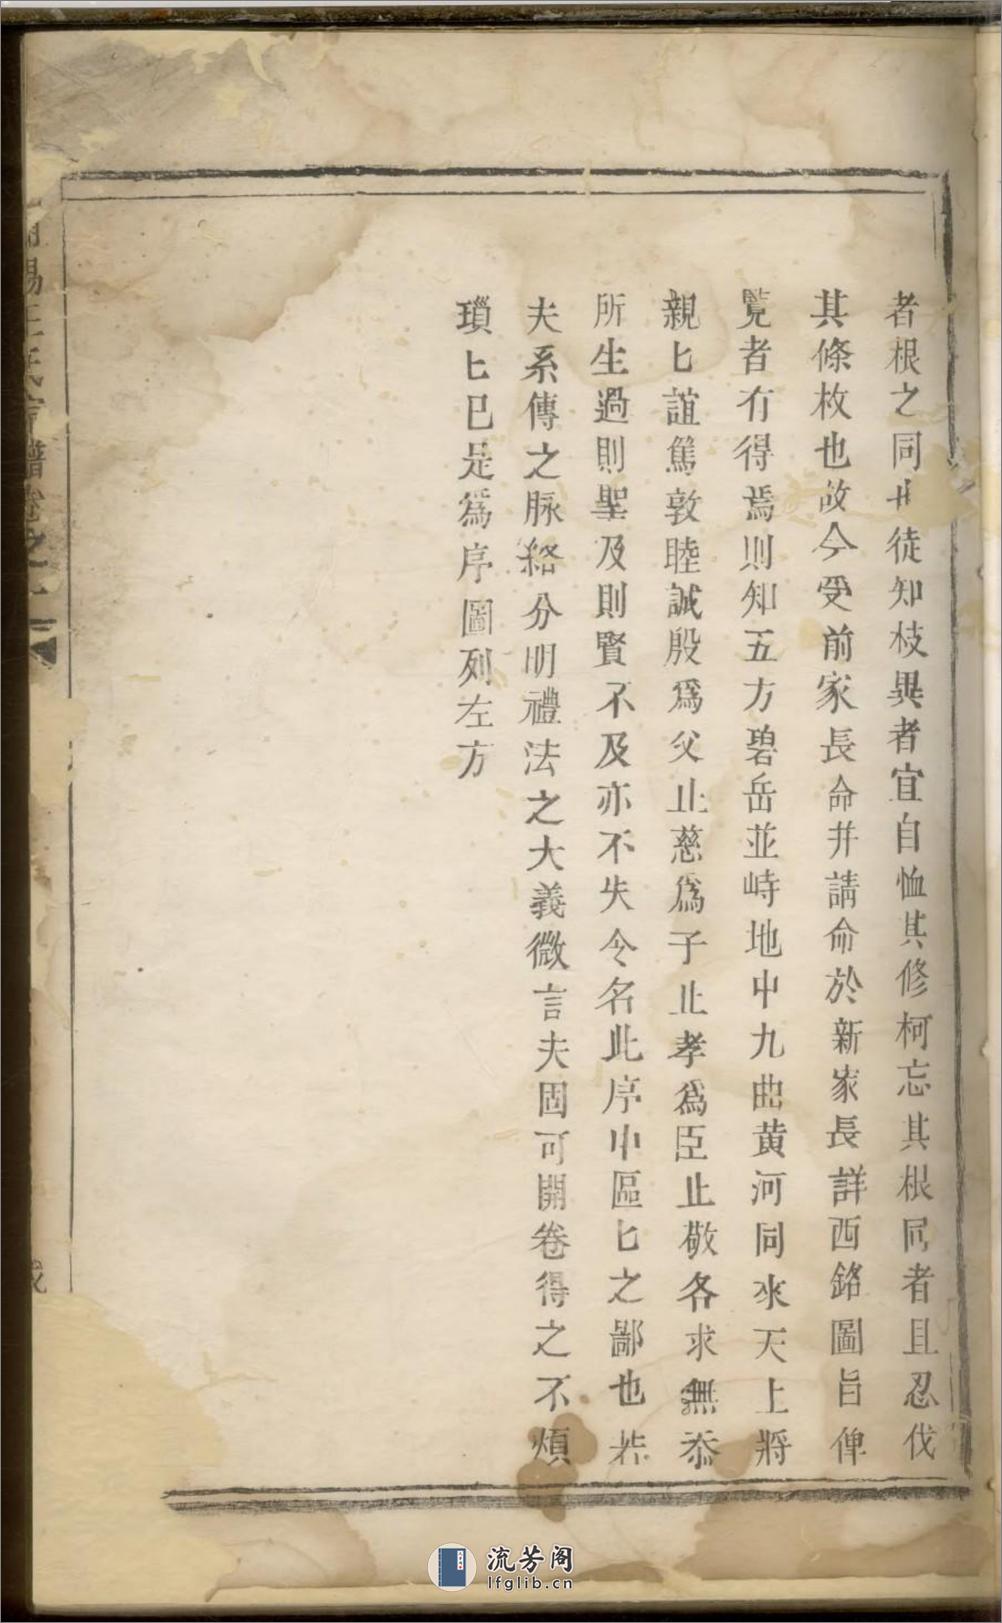 者根之同也徒知枝異者宜自恤其修柯忘其根同者且忍伐
其條枚也故今受前家長命并請命於新家長詳西銘圖旨俾
覧者有得焉則知五方碧岳並峙地中九曲黄河同來天上將
親匕誼篤敦睦誠殷爲父止慈爲子止孝爲臣止敬各求無忝
所生過則聖及則賢不及亦不失令名此序中區匕之鄙也若
夫系傳之脉絡分明禮法之大義微言夫固可開卷得之不煩
瑣匕已是爲序圖列左方
陽王氏宗譜卷之
流芳阁
lfglib.cn